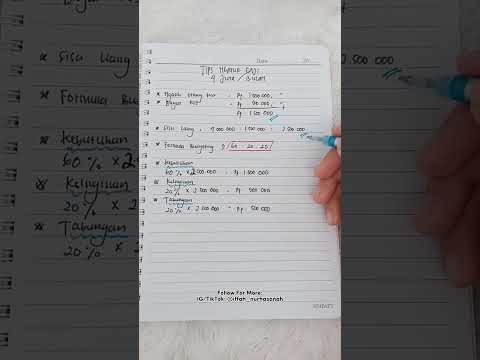 Date
TIPS MENGATUR GAJI
4 Juta / Bulan
* Ngasih Orang tua : Rp 1.000.000, "
* Bayar Kos : Rp 500.000, "
Rp 1.500.000
* Sisa Uang : 4.000.000 - 1.500.000 : 2.500.000
* Formula Budgeting → 60 - 20 - 20
* Kebutuhan
60% x 2.500.000 : Rp 1.500.000
* Keinginan
20% x 2.500.000 : Rp 500.000
* Tabungan
20% x 2.500.000 = Rp 500.000
* Sisa Uang
* Formula Bu
* Kebutuhan
60% x 2
* Keinginan
20% x 2
* Tabungan
20% x 2
.500.000
Follow For More: